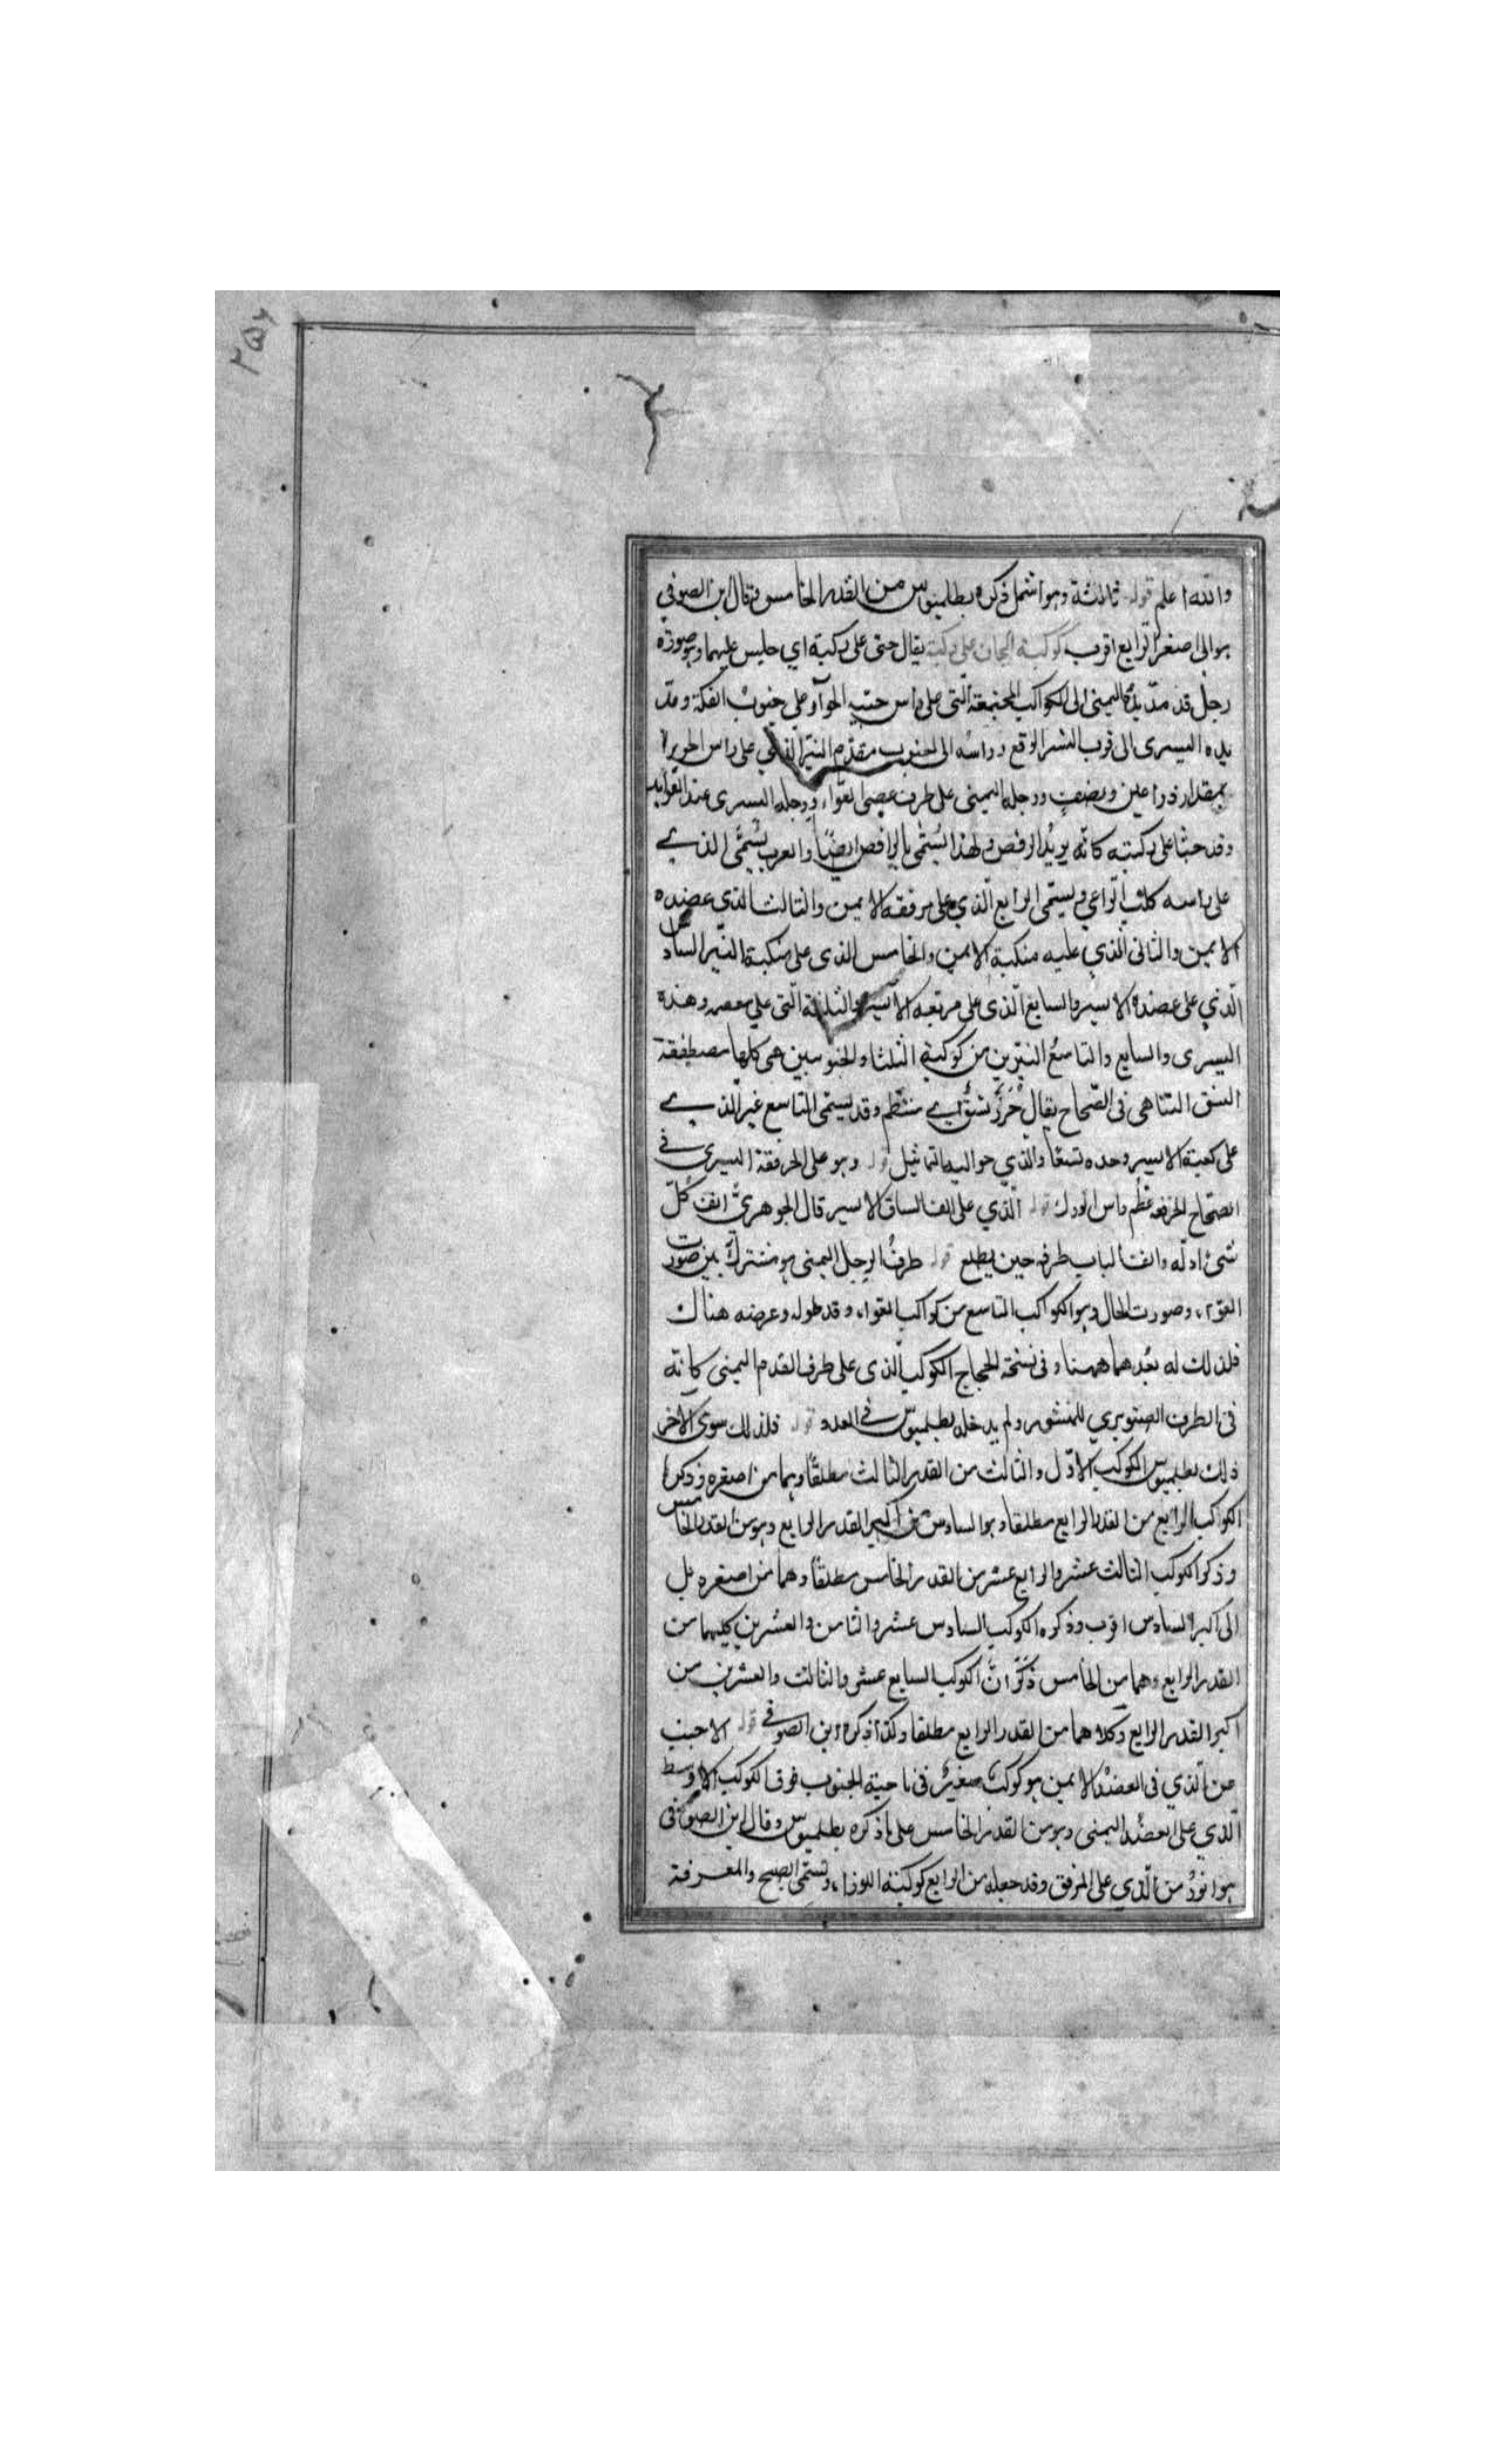 والله اعلم قوله ثالثة وهو اشمل ذكره بطلميوس من القدر الخامس وقال ابن الصوفي
هو الى صغر الرابع اقرب كوكبة الجاثى على ركبته يقال جثى على ركبته اي جلس عليهما وهو صورة
رجل قد مدّ يده اليمنى الى الكواكب المجتمعة الّتى على راس حيّة الحوّآ وعلى جنوب الفكة ومدّ
يده اليسرى الى قرب النسر الوقع وراسه الى الجنوب مقدّم النيّر الذي على راس الحوا
بمقدار ذراعين ونصف ورجله اليمنى على طرف عصى العوّاء ورجله اليسرى عند العوايد
وقد جثا على ركبته كانّه يريد الرقص ولهذا يسُمّى بالراقص ايضًا والعرب يسُمّى الذي
على راسه كلب الرّاعي ويسمّى الرابع الّذي على مرفقه الايمن والثالث الذى عضده
الايمن والثانى الّذي عليه منكبة الايمن والخامس الذى على منكبة النيّر السادس
الّذي على عضده الايسر والسابع الّذى على مرفقه الايسر والثلثة الّتى على معصمه وهذه
اليسرى والسابع والتاسع النيّرين من كوكبة الثلثا والجنوبين هى كلها مصطفقة
النسق التناهى فى الصّحاح يقال خَرَزٌ نسَقٌ اى منتظم وقد يسمّى التاسع غير الّذي
على كعبة الايسر وحده نسقا والذي حواليه التماثيل قوله وهو على الحرقفة اليسرى في
الصّحاح الحرقفة عظم راس الورك قوله الّذي على الف الساق الايسر قال الجوهريّ انف كلّ
شىء اوله وانف الباب طرفه حين يطلع قوله طرف الرجل اليمنى هو مشترك بين صورت
العوّاء وصورت الحال وهو الكواكب التاسع من كواكب العواء وقد طوله وعرضه هناك
فلذلك له بعدهما ههنا وفى نسخة الحجاج الكوكب الّذى على طرف القدم اليمنى كانّه
فى الطرف الصنوبري للمنشور ولم يدخله بطلميوس في العدد قوله فلذلك سوى الاخر
ذلك بطلميوس الكوكب الاوّل والثالث من القدر الثالث مطلقًا وهما من اصغره وذكر
الكواكب الرابع من القدر الرابع مطلقا وهو السادس من اكبر القدر الرابع وهو من القدر الخامس
وذكر الكوكب الثالث عشر والرابع عشر من القدر الخامس مطلقًا وهما من اصغره بل
الى اكبر السادس اقرب وذكره الكوكب السادس عشر والثامن والعشرين كليهما من
القدر الرابع وهما من الخامس ذكر انّ الكوكب السابع عشر والثالث والعشرين من
اكبر القدر الرابع وكلاهما من القدر الرابع مطلقا وكذا ذكره ابن الصوفي قوله الاجنب
عن الّذي فى العضد الايمن هو كوكب صغير فى ناحية الجنوب فوق الكوكب الاوسط
الّذي على العضد اليمنى وهو من القدر الخامس على ما ذكره بطلميوس وقال ابن الصوفى
هو انور من الّذي على المرفق وقد جعله من الرابع كوكبة اللوزا، وتسمّى الصبح والمعرفة